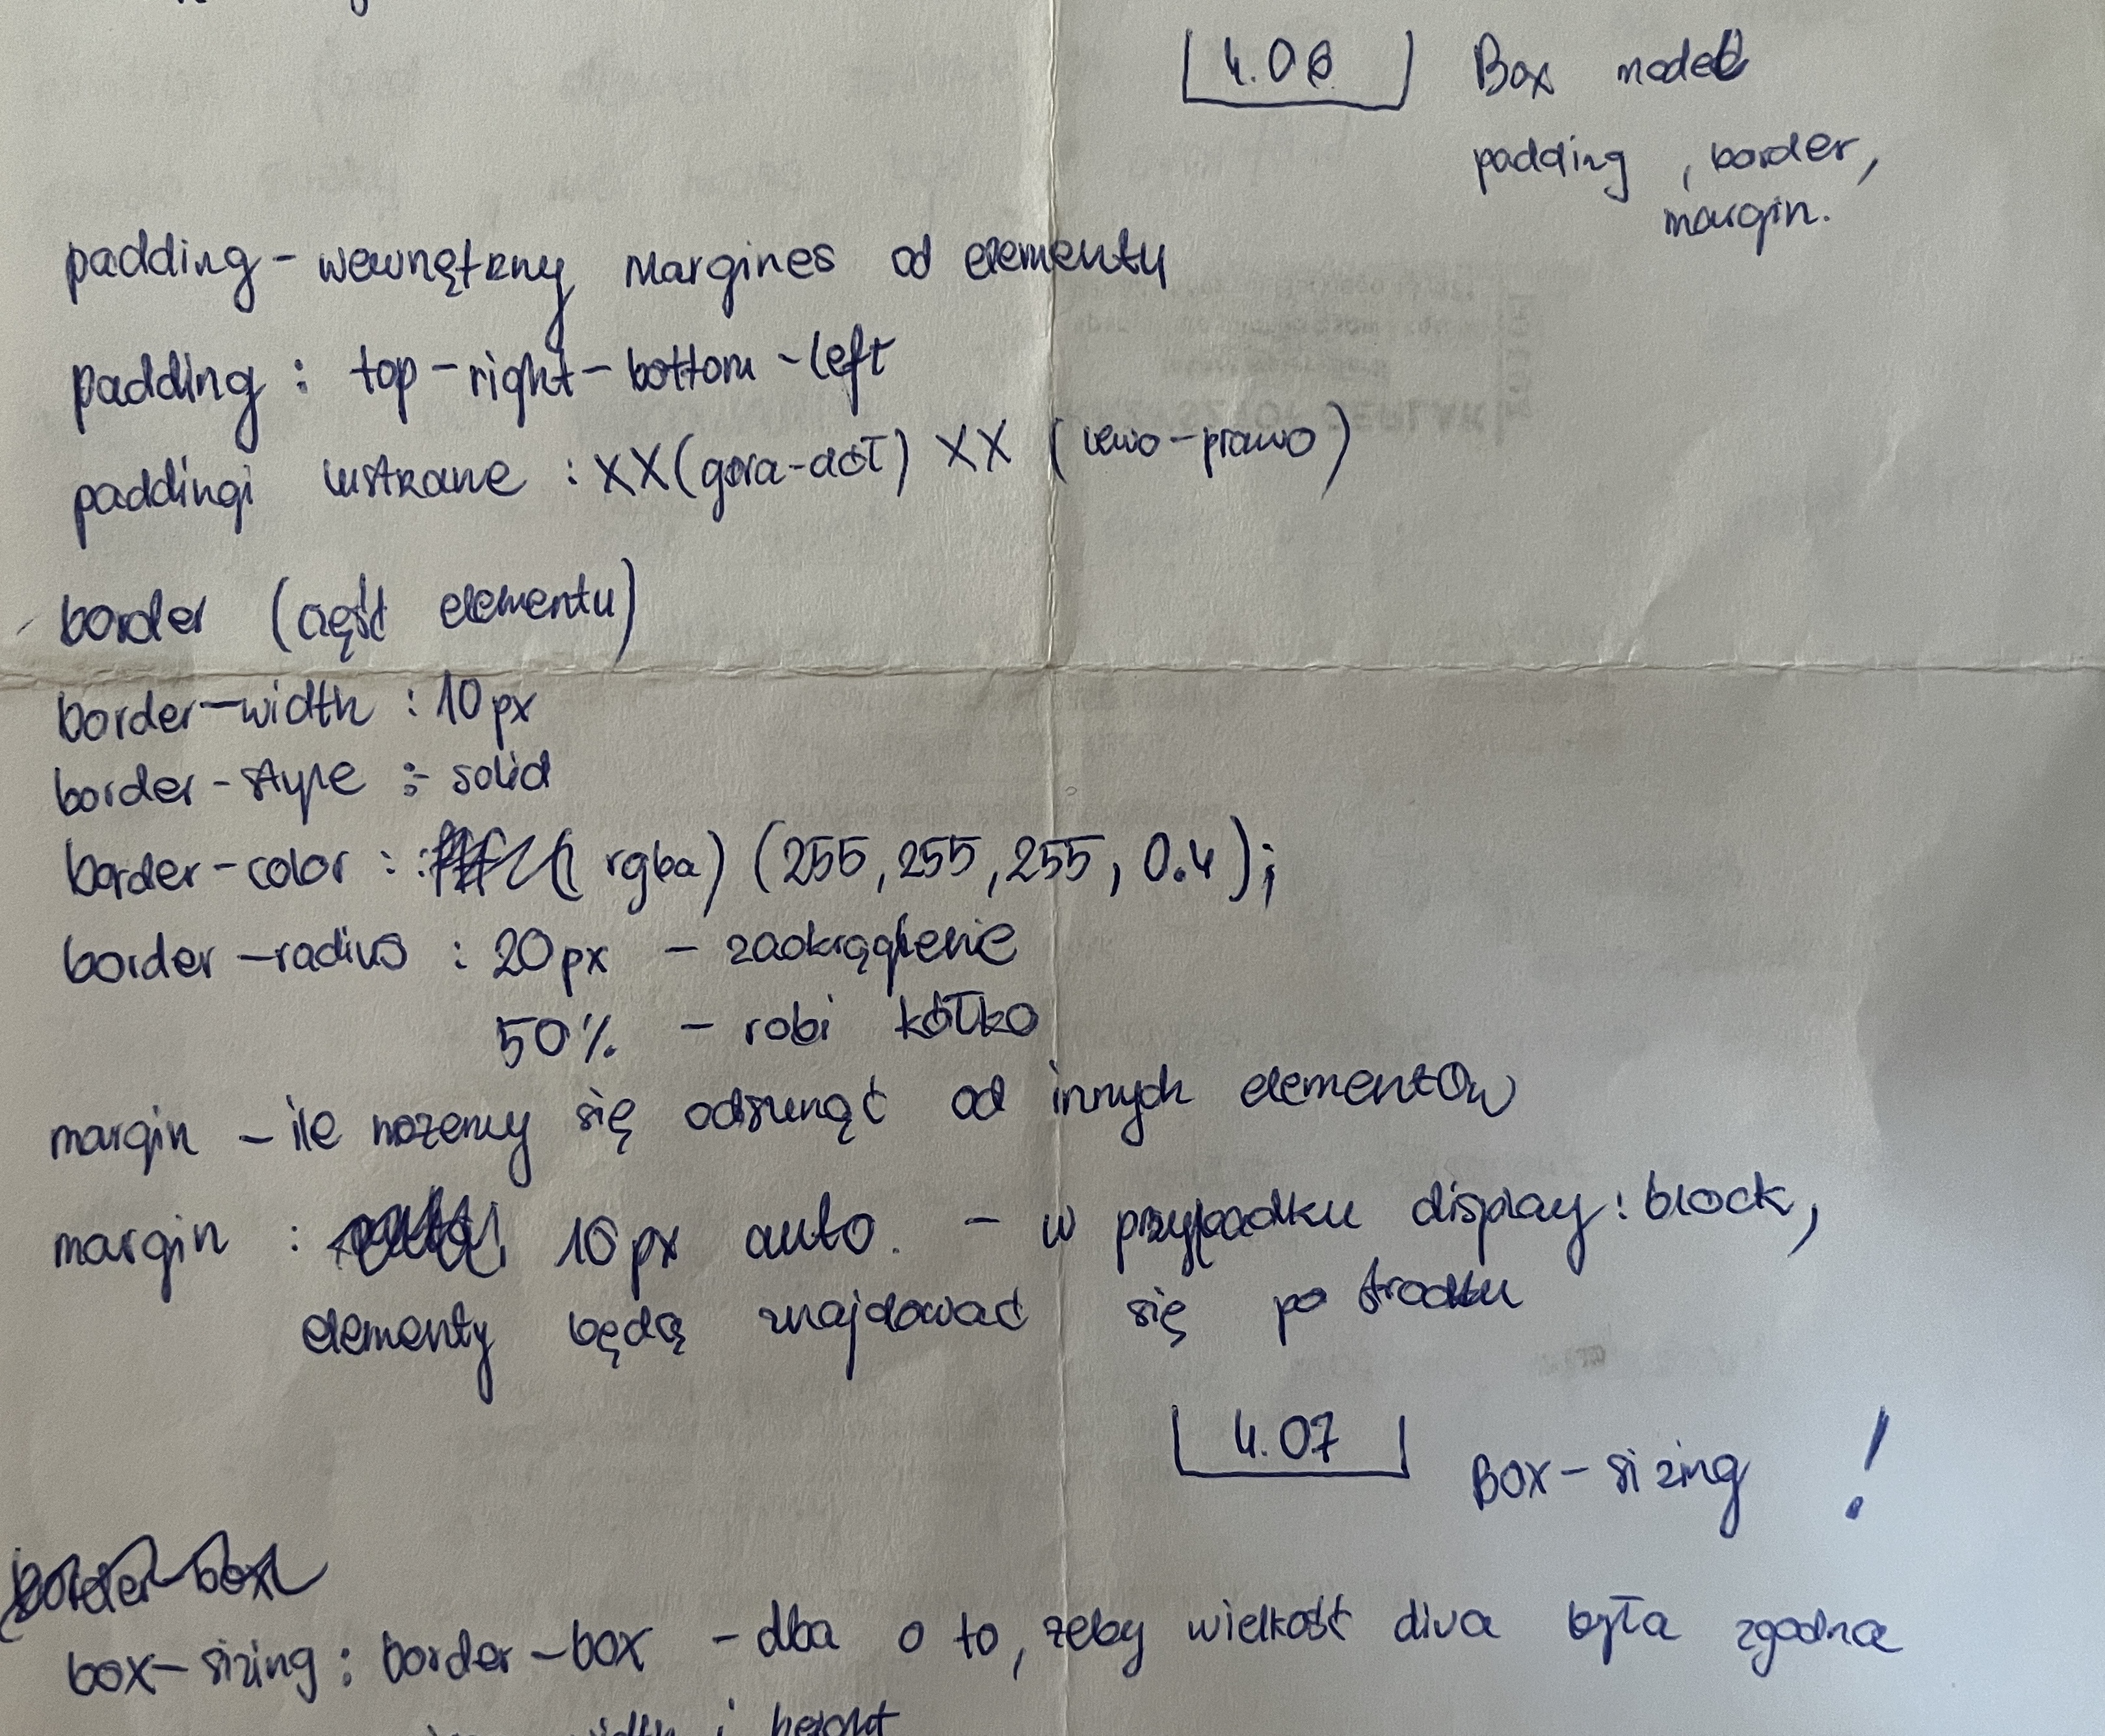 4.06 Box model
padding, border,
margin.
padding - wewnętrzny margines od elementu
padding : top - right - bottom - left
paddingi : XX (gora-dół) XX (lewo-prawo)
border (część elementu)
border-width : 10px
border-style : solid
border-color : (rgba) (255, 255, 255, 0.4);
border-radius : 20px - zaokrąglenie
50% - robi kółko
margin - ile możemy się odsunąć od innych elementów
margin : 10px auto. - w przypadku display: block,
elementy będą znajdować się po środku
4.07 Box-sizing !
border-box
box-sizing : border-box - dba o to, żeby wielkość diva była zgodna
width i height